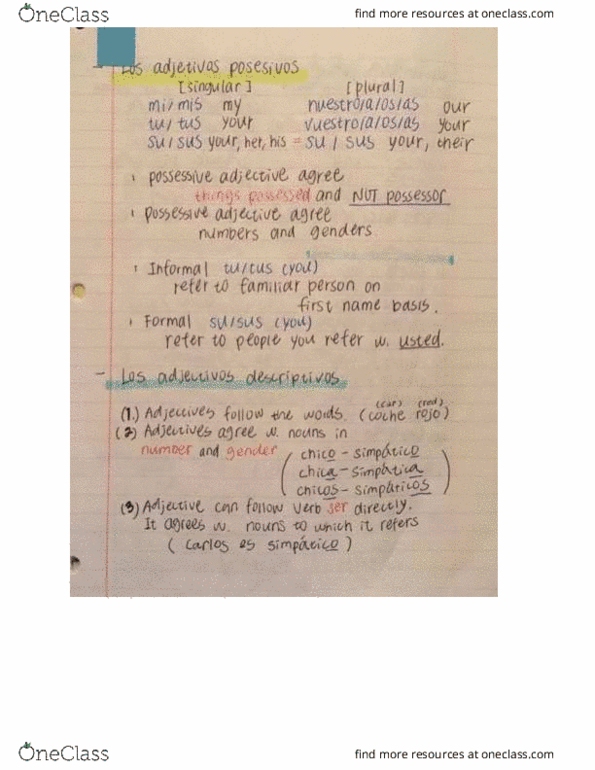 OneClass
find more resources at oneclass.com
- Los adjetivas posesivos
[singular] [plural]
mi/mis my nuestro/a/os/as our
tu/tus your vuestro/a/os/as your
su/sus your, her, his = su / sus your, their
possessive adjective agree
things possessed and NOT possessor
possessive adjective agree
numbers and genders
Informal tu/tus (you)
refer to familiar person on
first name basis.
Formal su/sus (you)
refer to people you refer w. usted.
- Los adjectivos descriptivos
(car) (red)
(1.) Adjectives follow the words. (coche rojo)
(2) Adjectives agree w. nouns in
number and gender
(chico - simpático
chica - simpática
chicos - simpáticos)
(3) Adjective can follow verb ser directly.
It agrees w. nouns to which it refers
(Carlos es simpático)
OneClass
find more resources at oneclass.com